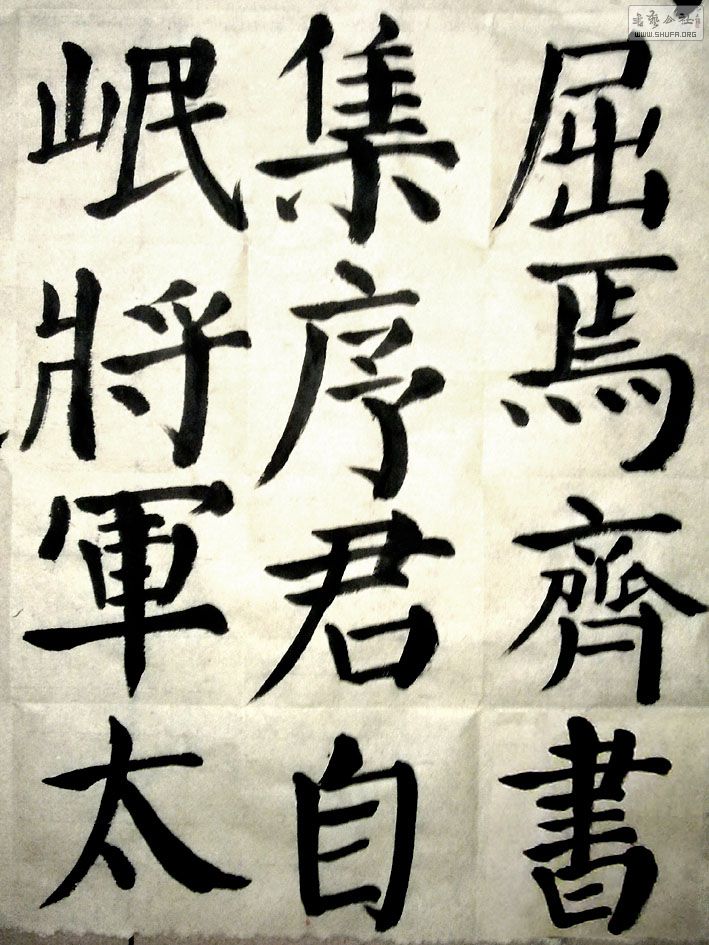 屈焉齊書
集序君自
岷將軍太
書藝公社
WWW.SHUFA.ORG